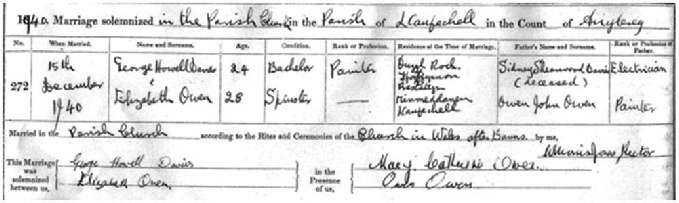 1940. Marriage solemnized in the Parish Church in the Parish of Llanfechell in the Count of Anglesey
No. When Married. Name and Surname. Age. Condition. Rank or Profession. Residence at the Time of Marriage. Father's Name and Surname. Rank or Profession of Father.
272 15th December 1940 George Howell Davies 24 Bachelor Painter Sidney Davies (deceased) Electrician
Elizabeth Owen 28 Spinster — Llanfechell Owen John Owen Painter
Married in the Parish Church according to the Rites and Ceremonies of the Church in Wales after Banns by me,
Rector
This Marriage was solemnized between us, George Howell Davies in the Presence of us, Mary Catherine Owen
Elizabeth Owen Owen Owen